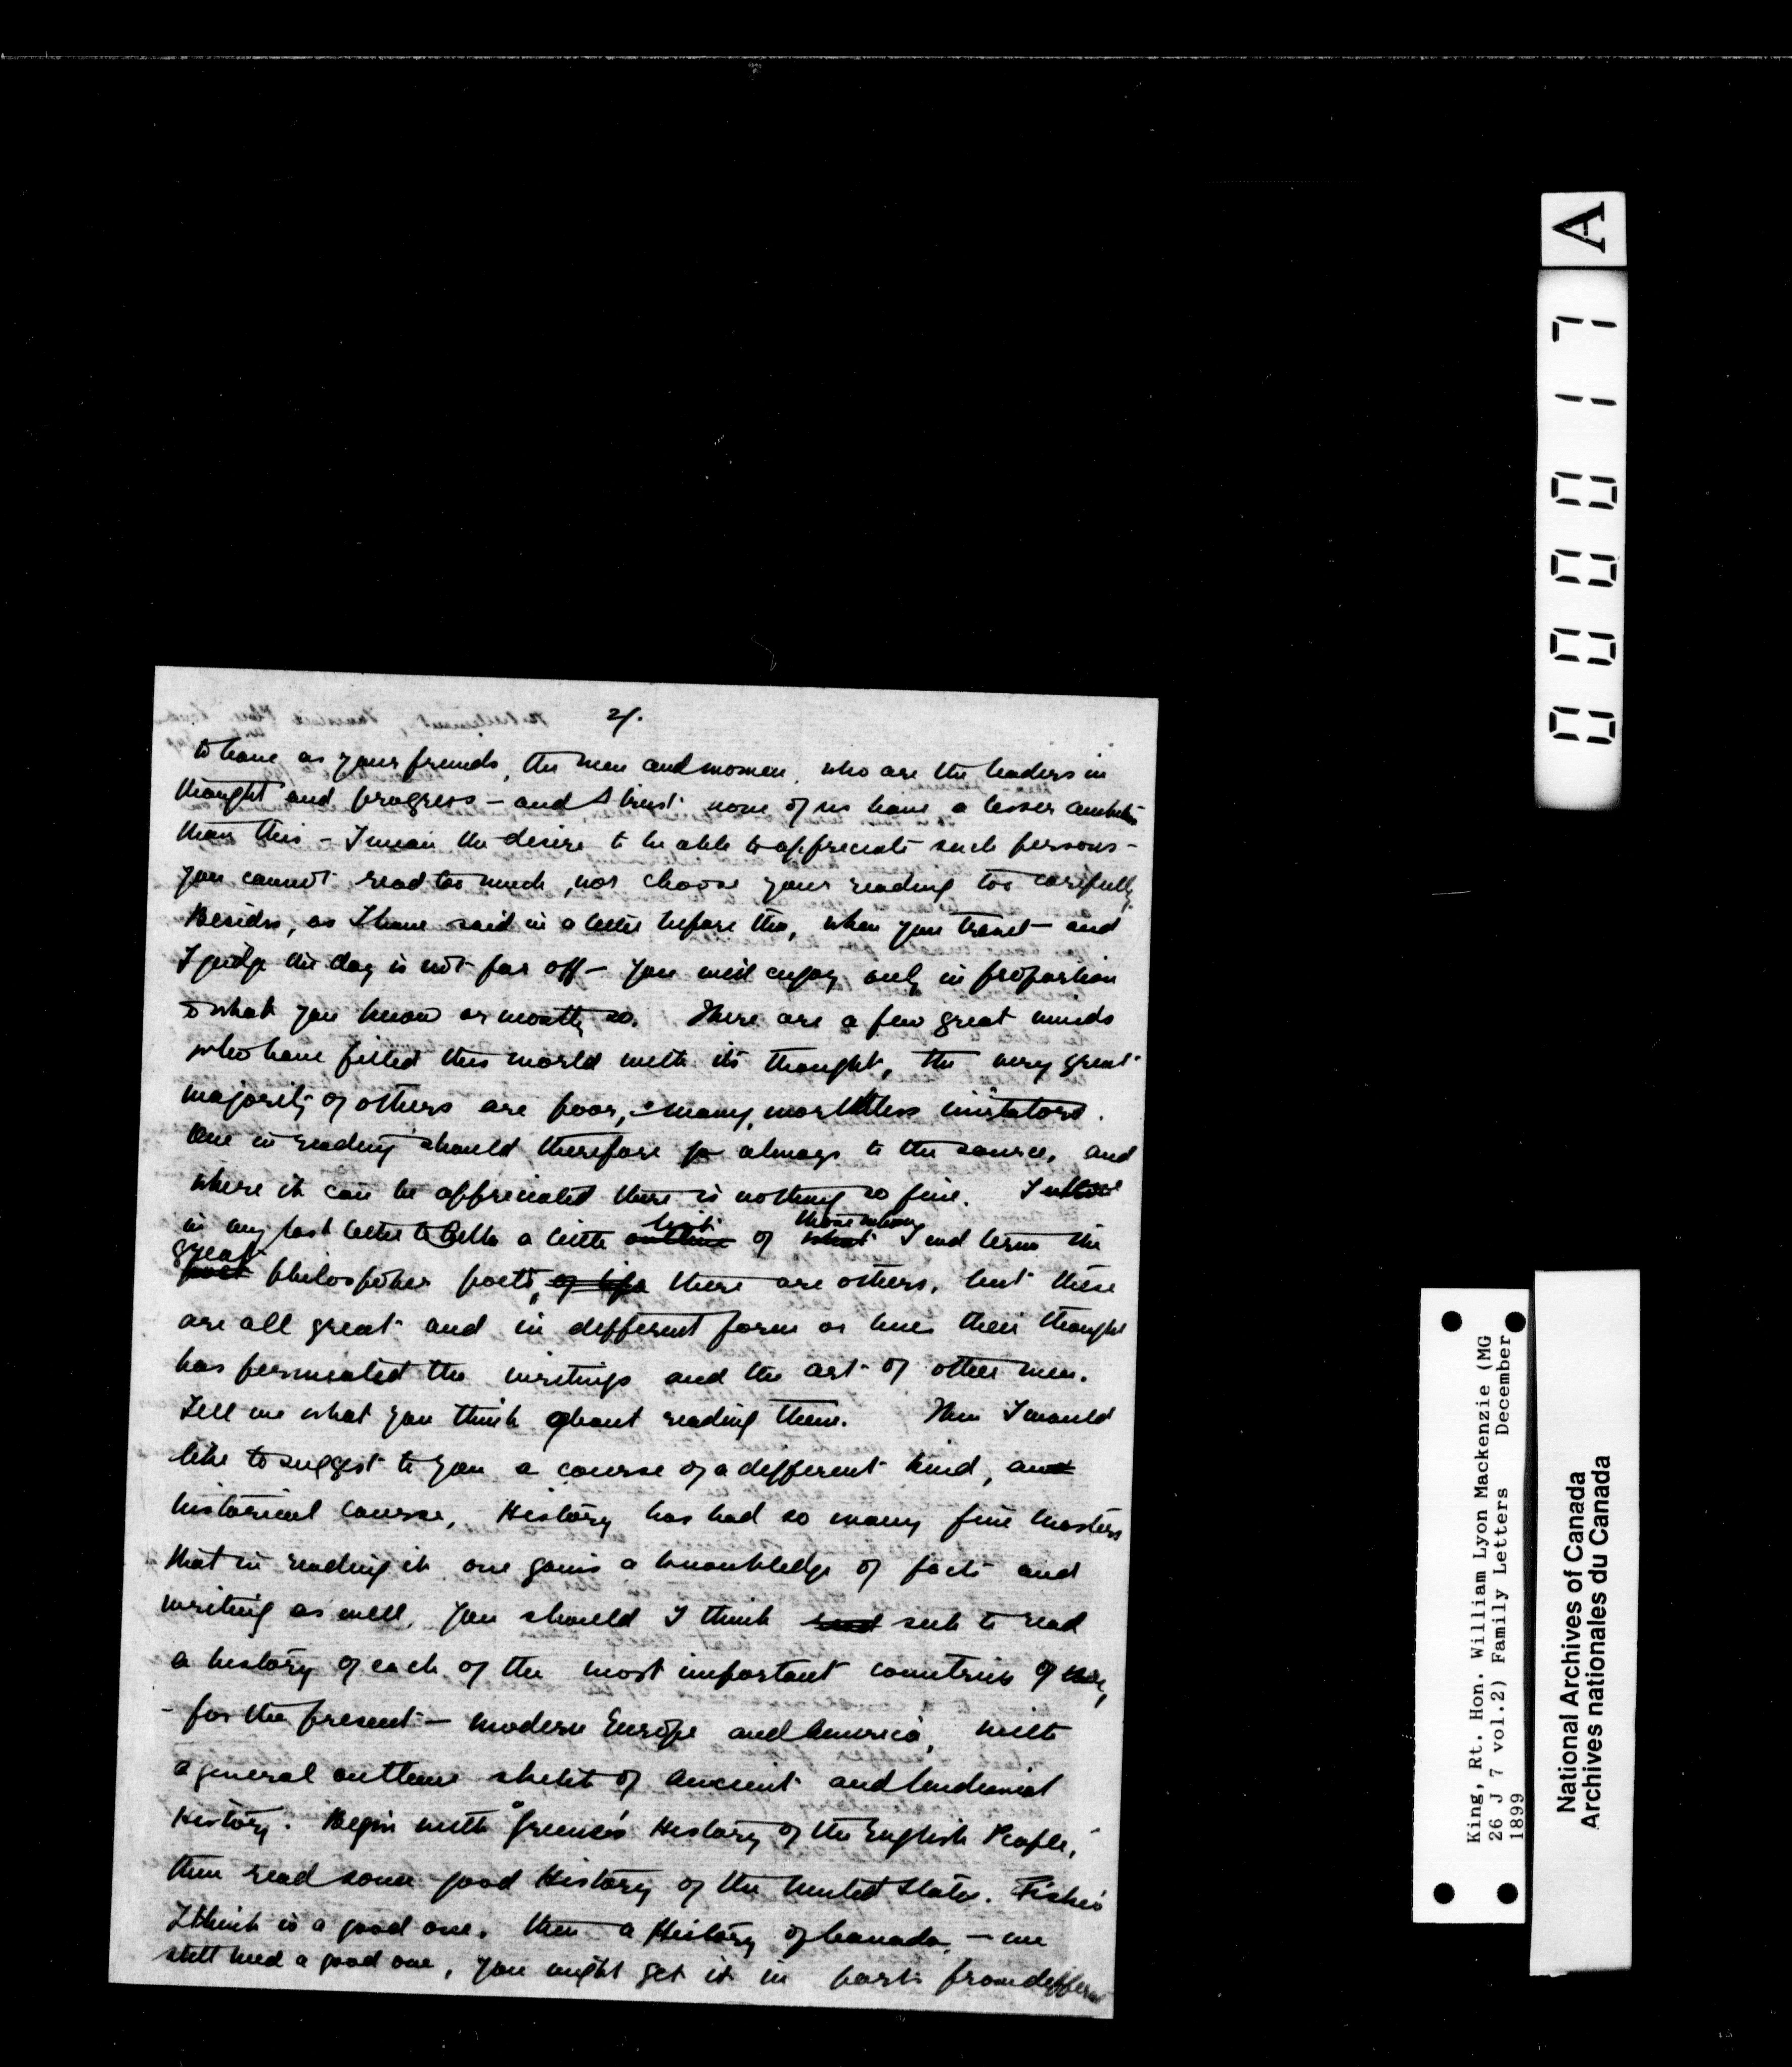 2/.
to have as your friends, the men and women, who are the leaders in
thought and progress – and I trust none of us have a lesser ambition
than this – I mean the desire to be able to appreciate such persons –
you cannot read too much, nor choose your reading too carefully.
Besides, as I have said in a letter before this, when you travel – and
I judge the day is not far off – you will enjoy only in proportion
to what you know or mostly so. There are a few great minds
who have filled this world with its thought, the very great
majority of others are poor, many, worthless imitators.
One in reading should therefore go always to the source, and
where it can be appreciated there is nothing so fine. I
in my last letter to Bella a little outline list of what those whom I wd term the
great philosopher poets, of life there are others, but these
are all great and in different form or lines their thought
has permeated the writings and the art of other men.
Tell me what you think about reading them. Then I would
like to suggest to you a course of a different kind, and
historical course, History has had so many fine masters
that in reading it one gains a knowledge of facts and
writing as well, you should I think read seek to read
a history of each of the most important countries of
– for the present – modern Europe and America, with
a general outline sketch of ancient and mediaeval
History. Begin with "Greene's History of the English People,"
then read some good History of the United States. Fiske's
I think is a good one. then a History of Canada, – we
still need a good one, you might get it in parts from different
A
0000017
King, Rt. Hon. William Lyon Mackenzie (MG
26 J 7 vol.2) Family Letters December
1899
National Archives of Canada
Archives nationales du Canada